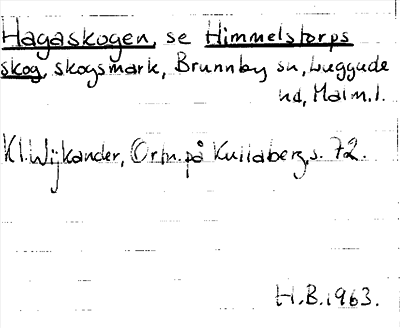 Hagaskogen, se Himmelstorps
skog, skogsmark, Brunnby sn, Luggude
hd, Malm. l.
Kl. Wijkander, Ortn. på Kullaberg, s. 72.
H.B. 1963.